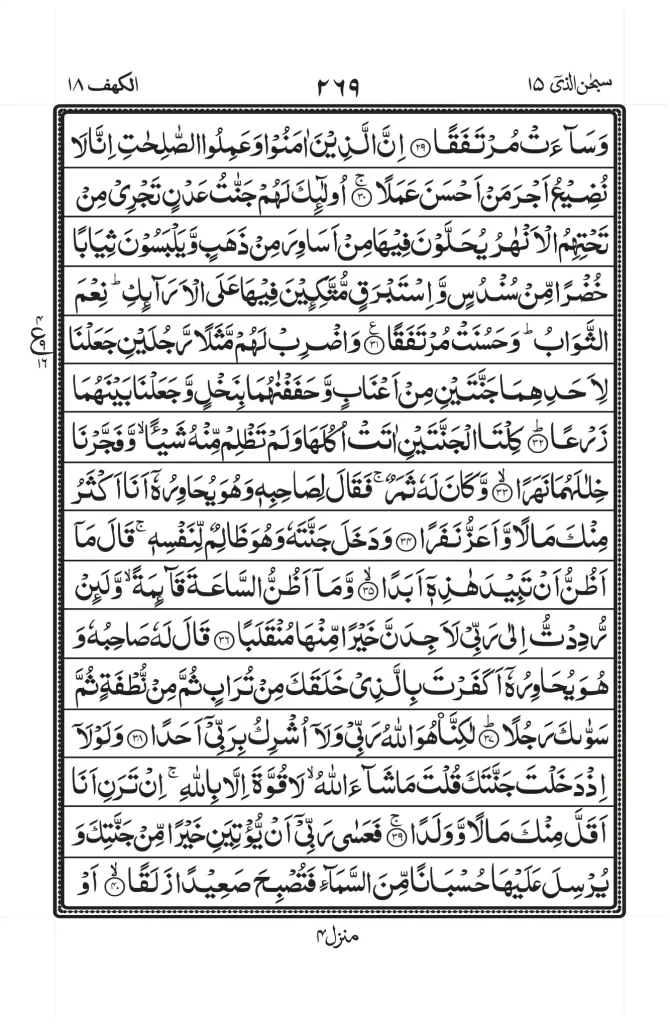 سبحٰن الذیٓ ۱۵ ۲۶۹ الکهف ۱۸
وَسَآءَتْ مُرْتَفَقًا ۝۲۹ اِنَّ الَّذِيْنَ اٰمَنُوْا وَعَمِلُوا الصّٰلِحٰتِ اِنَّا لَا
نُضِيْعُ اَجْرَ مَنْ اَحْسَنَ عَمَلًا ۝۳۰ۚ اُولٰٓئِكَ لَهُمْ جَنّٰتُ عَدْنٍ تَجْرِيْ مِنْ
تَحْتِهِمُ الْاَنْهٰرُ يُحَلَّوْنَ فِيْهَا مِنْ اَسَاوِرَ مِنْ ذَهَبٍ وَّيَلْبَسُوْنَ ثِيَابًا
خُضْرًا مِّنْ سُنْدُسٍ وَّاِسْتَبْرَقٍ مُّتَّكِـِٕيْنَ فِيْهَا عَلَى الْاَرَآئِكِ ؕ نِعْمَ
الثَّوَابُ ؕ وَحَسُنَتْ مُرْتَفَقًا ۝۳۱ع وَاضْرِبْ لَهُمْ مَّثَلًا رَّجُلَيْنِ جَعَلْنَا
ع ۴ ۹ ۱۶
لِاَحَدِهِمَا جَنَّتَيْنِ مِنْ اَعْنَابٍ وَّحَفَفْنٰهُمَا بِنَخْلٍ وَّجَعَلْنَا بَيْنَهُمَا
زَرْعًا ۝۳۲ؕ كِلْتَا الْجَنَّتَيْنِ اٰتَتْ اُكُلَهَا وَلَمْ تَظْلِمْ مِّنْهُ شَيْـًٔا ۙ وَّفَجَّرْنَا
خِلٰلَهُمَا نَهَرًا ۝۳۳ۙ وَّكَانَ لَهٗ ثَمَرٌ ۚ فَقَالَ لِصَاحِبِهٖ وَهُوَ يُحَاوِرُهٗٓ اَنَا اَكْثَرُ
مِنْكَ مَالًا وَّاَعَزُّ نَفَرًا ۝۳۴ وَدَخَلَ جَنَّتَهٗ وَهُوَ ظَالِمٌ لِّنَفْسِهٖ ۚ قَالَ مَآ
اَظُنُّ اَنْ تَبِيْدَ هٰذِهٖٓ اَبَدًا ۝۳۵ۙ وَّمَآ اَظُنُّ السَّاعَةَ قَآئِمَةً ۙ وَّلَئِنْ
رُّدِدْتُّ اِلٰى رَبِّيْ لَاَجِدَنَّ خَيْرًا مِّنْهَا مُنْقَلَبًا ۝۳۶ قَالَ لَهٗ صَاحِبُهٗ وَ
هُوَ يُحَاوِرُهٗٓ اَكَفَرْتَ بِالَّذِيْ خَلَقَكَ مِنْ تُرَابٍ ثُمَّ مِنْ نُّطْفَةٍ ثُمَّ
سَوّٰىكَ رَجُلًا ۝۳۷ؕ لٰكِنَّا۠ هُوَ اللّٰهُ رَبِّيْ وَلَآ اُشْرِكُ بِرَبِّيْٓ اَحَدًا ۝۳۸ وَلَوْلَآ
اِذْ دَخَلْتَ جَنَّتَكَ قُلْتَ مَا شَآءَ اللّٰهُ ۙ لَا قُوَّةَ اِلَّا بِاللّٰهِ ۚ اِنْ تَرَنِ اَنَا
اَقَلَّ مِنْكَ مَالًا وَّوَلَدًا ۝۳۹ۚ فَعَسٰى رَبِّيْٓ اَنْ يُّؤْتِيَنِ خَيْرًا مِّنْ جَنَّتِكَ وَ
يُرْسِلَ عَلَيْهَا حُسْبَانًا مِّنَ السَّمَآءِ فَتُصْبِحَ صَعِيْدًا زَلَقًا ۝۴۰ۙ اَوْ
منزل ۴